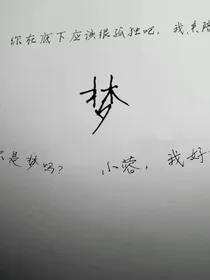 你在底下应该很孤独吧，我来陪
梦
是梦吗？ 小蓉，我好